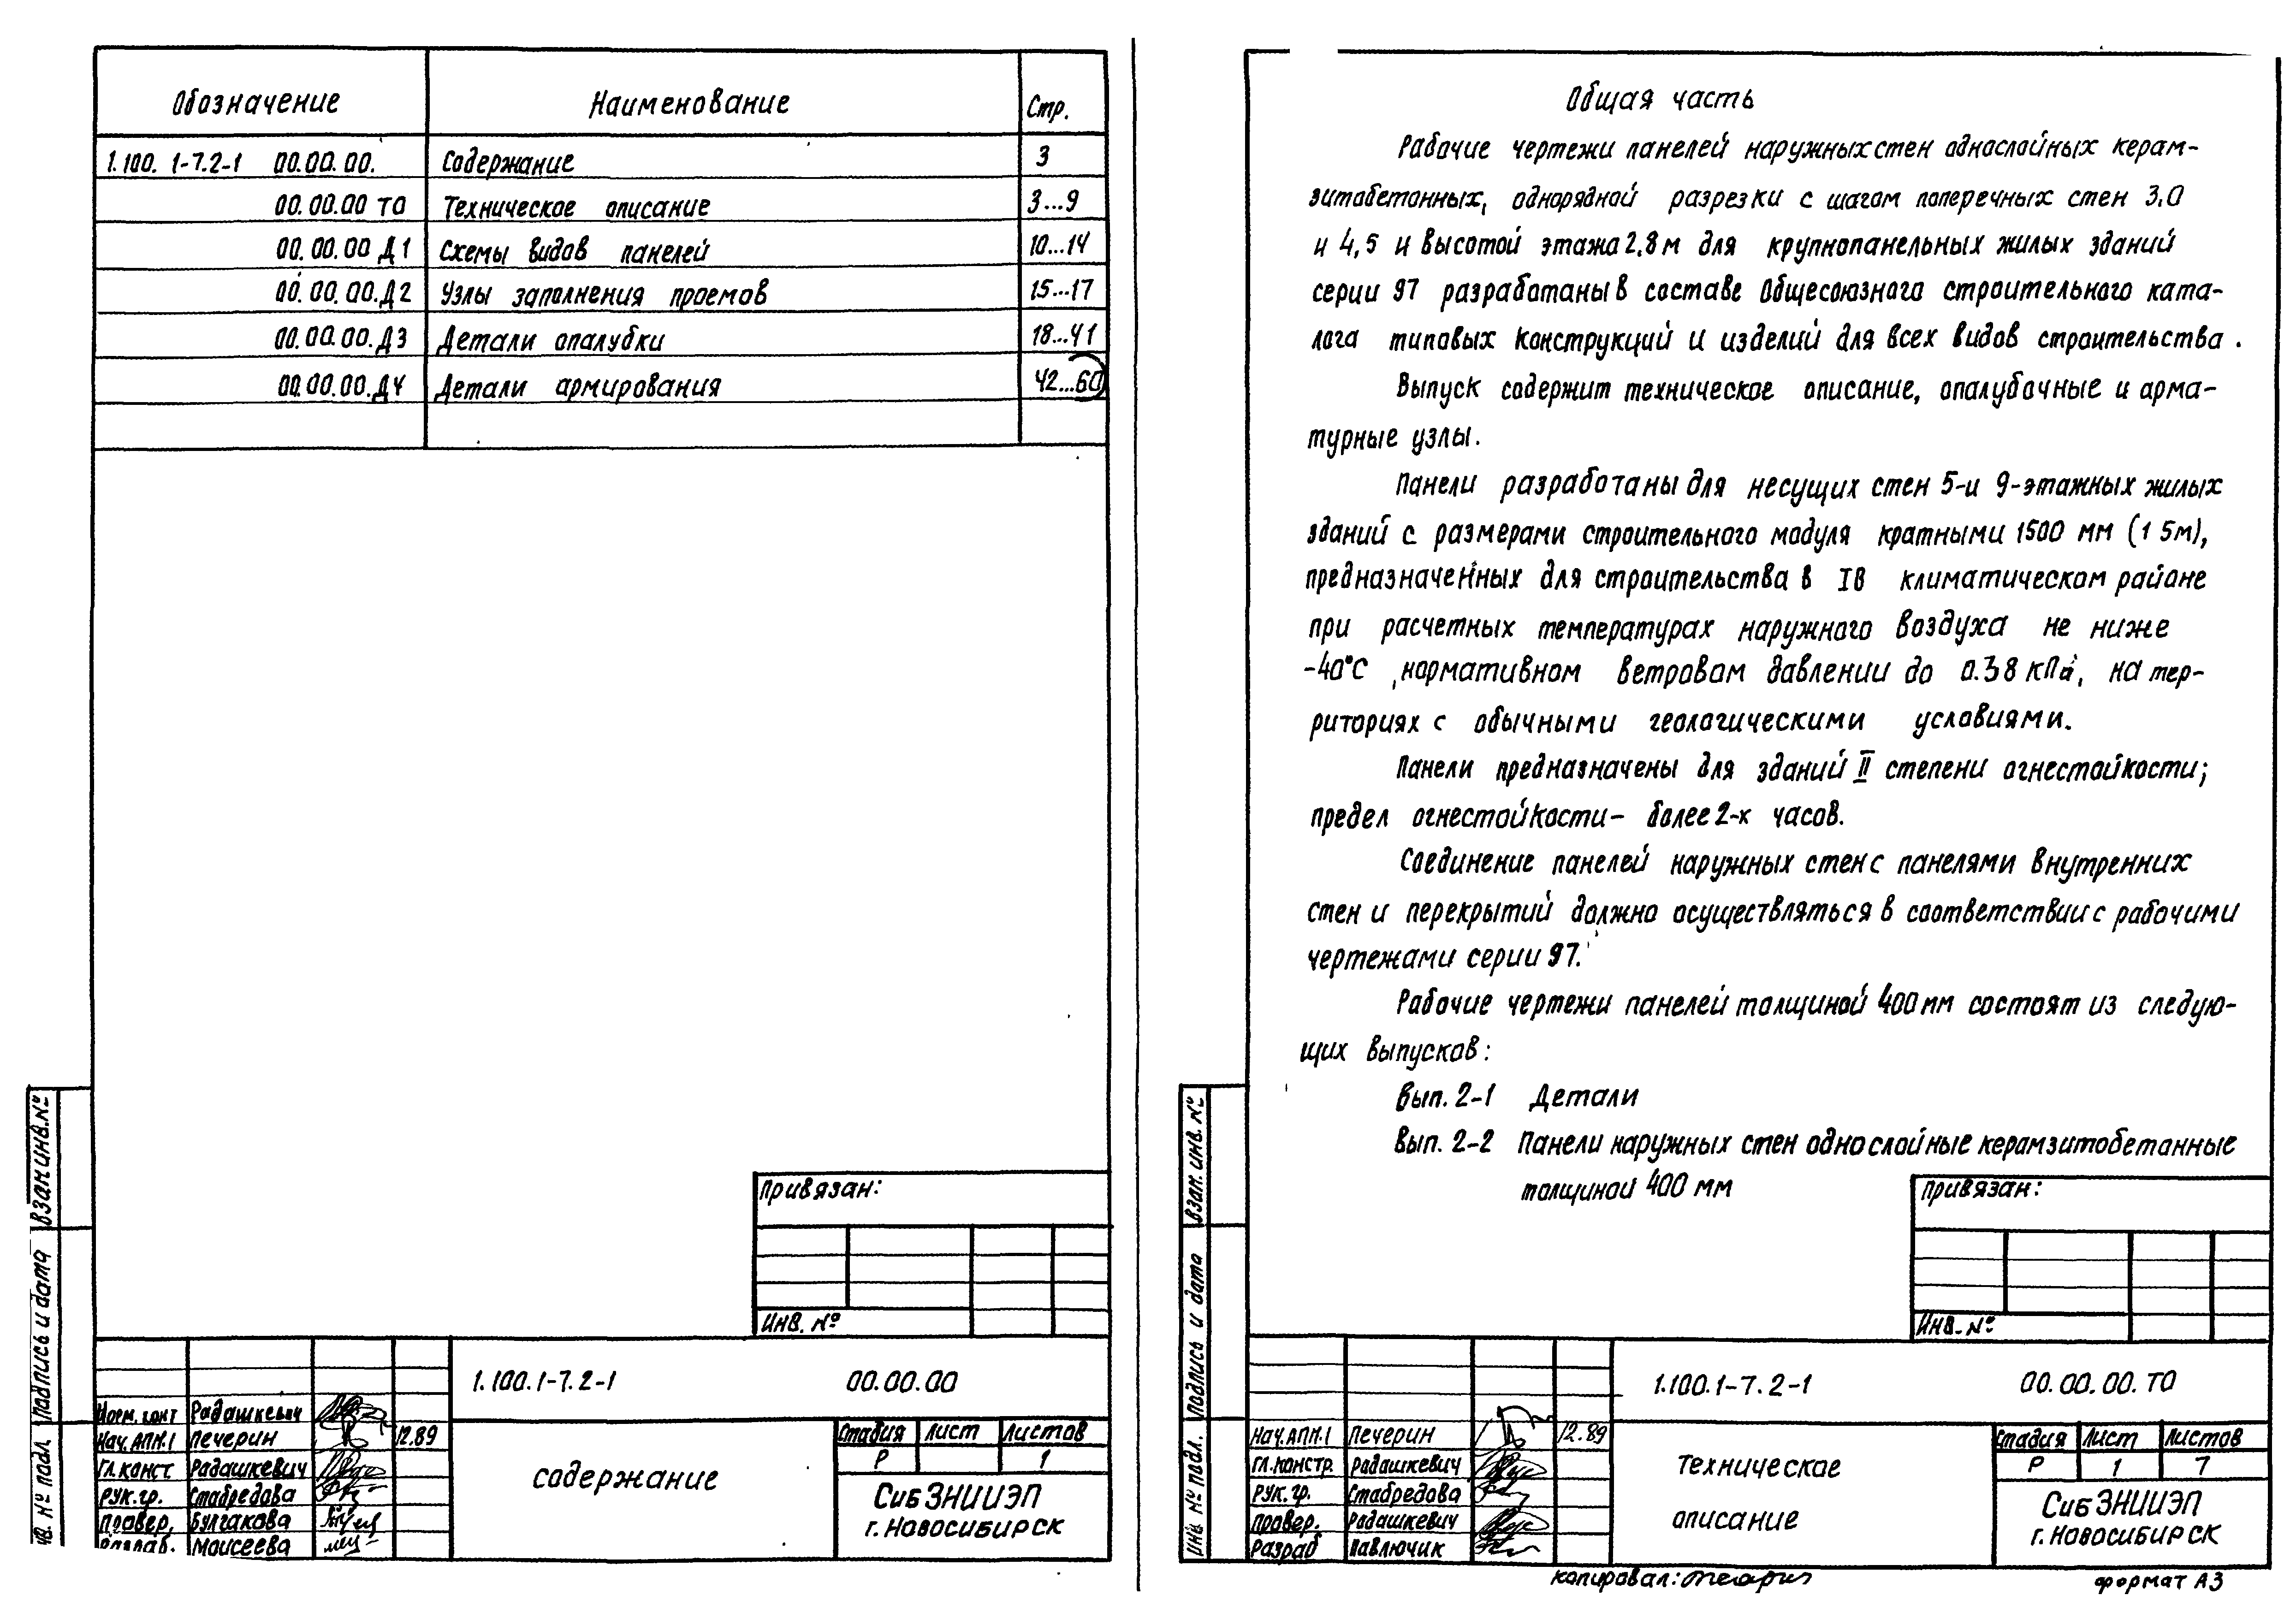 Обозначение Наименование Стр.
1.100. 1-7.2-1 00.00.00. Содержание 3
00.00.00 ТО Техническое описание 3...9
00.00.00 Д1 Схемы видов панелей 10...14
00.00.00.Д2 Узлы заполнения проемов 15...17
00.00.00.Д3 Детали опалубки 18...41
00.00.00.Д4 Детали армирования 42...60
Привязан:
Инв. №
1.100.1-7.2-1 00.00.00
Норм. конт Радашкевич
Нач. АПМ.1 Печерин 12.89
Гл. конст. Радашкевич
Рук. гр. Стабредова
Провер. Булгакова
Разраб. Моисеева
содержание
Стадия Лист Листов
Р 1
СибЗНИИЭП
г. Новосибирск
Взам инв. №
Подпись и дата
Инв. № подл.
Общая часть
Рабочие чертежи панелей наружных стен однослойных керам-
зитобетонных, однорядной разрезки с шагом поперечных стен 3.0
и 4,5 и высотой этажа 2.8 м для крупнопанельных жилых зданий
серии 97 разработаны в составе Общесоюзного строительного ката-
лога типовых конструкций и изделий для всех видов строительства.
Выпуск содержит техническое описание, опалубочные и арма-
турные узлы.
Панели разработаны для несущих стен 5-и 9-этажных жилых
зданий с размерами строительного модуля кратными 1500 мм (1 5м),
предназначенных для строительства в IВ климатическом районе
при расчетных температурах наружного воздуха не ниже
-40°С, нормативном ветровом давлении до 0.38 кПа, на тер-
риториях с обычными геологическими условиями.
Панели предназначены для зданий II степени огнестойкости;
предел огнестойкости - более 2-х часов.
Соединение панелей наружных стен с панелями внутренних
стен и перекрытий должно осуществляться в соответствии с рабочими
чертежами серии 97.
Рабочие чертежи панелей толщиной 400 мм состоят из следую-
щих выпусков:
Вып. 2-1 Детали
Вып. 2-2 Панели наружных стен однослойные керамзитобетонные
толщиной 400 мм
Привязан:
Инв. №
1.100.1-7.2-1 00.00.00.ТО
Нач. АПМ.1 Печерин 12.89
Гл. констр. Радашкевич
Рук. гр. Стабредова
Провер. Радашкевич
Разраб Павлючик
Техническое
описание
Стадия Лист Листов
Р 1 7
СибЗНИИЭП
г. Новосибирск
Взам. инв. №
Подпись и дата
Инв № подл.
копировал:
формат А3